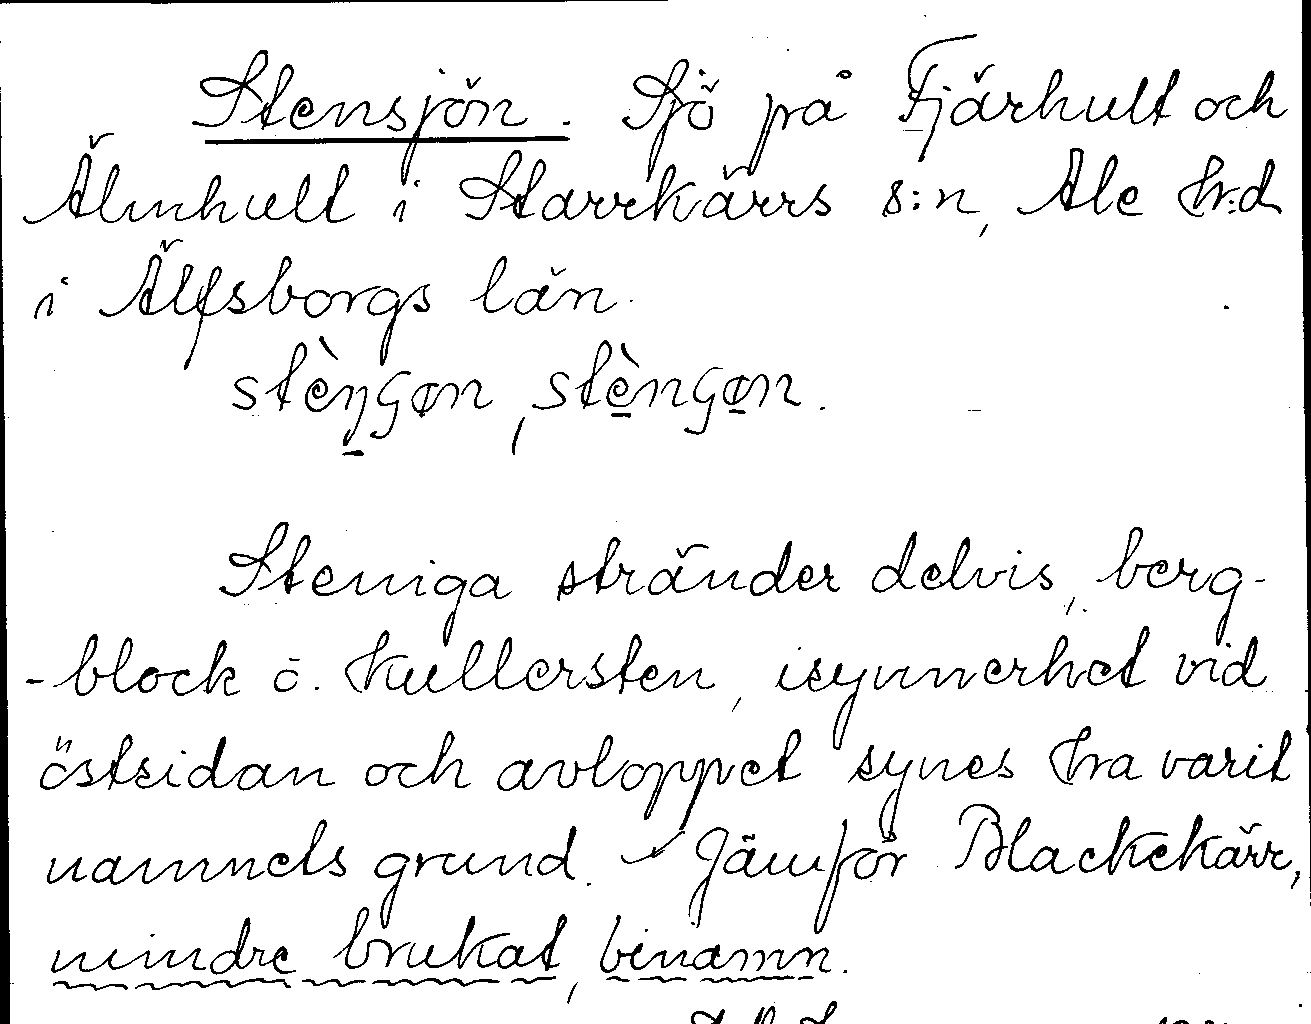 Stensjön. Sjö på Fjärhult och
Älmhult i Starrkärrs s:n, Ale h:d
i Älfsborgs län.
stèŋɢøn, stènɢøn.
Steniga stränder delvis, berg-
-block o. kullersten, isynnerhet vid
östsidan och avloppet synes ha varit
namnets grund. Jämför Blackekärr,
mindre brukat, binamn.